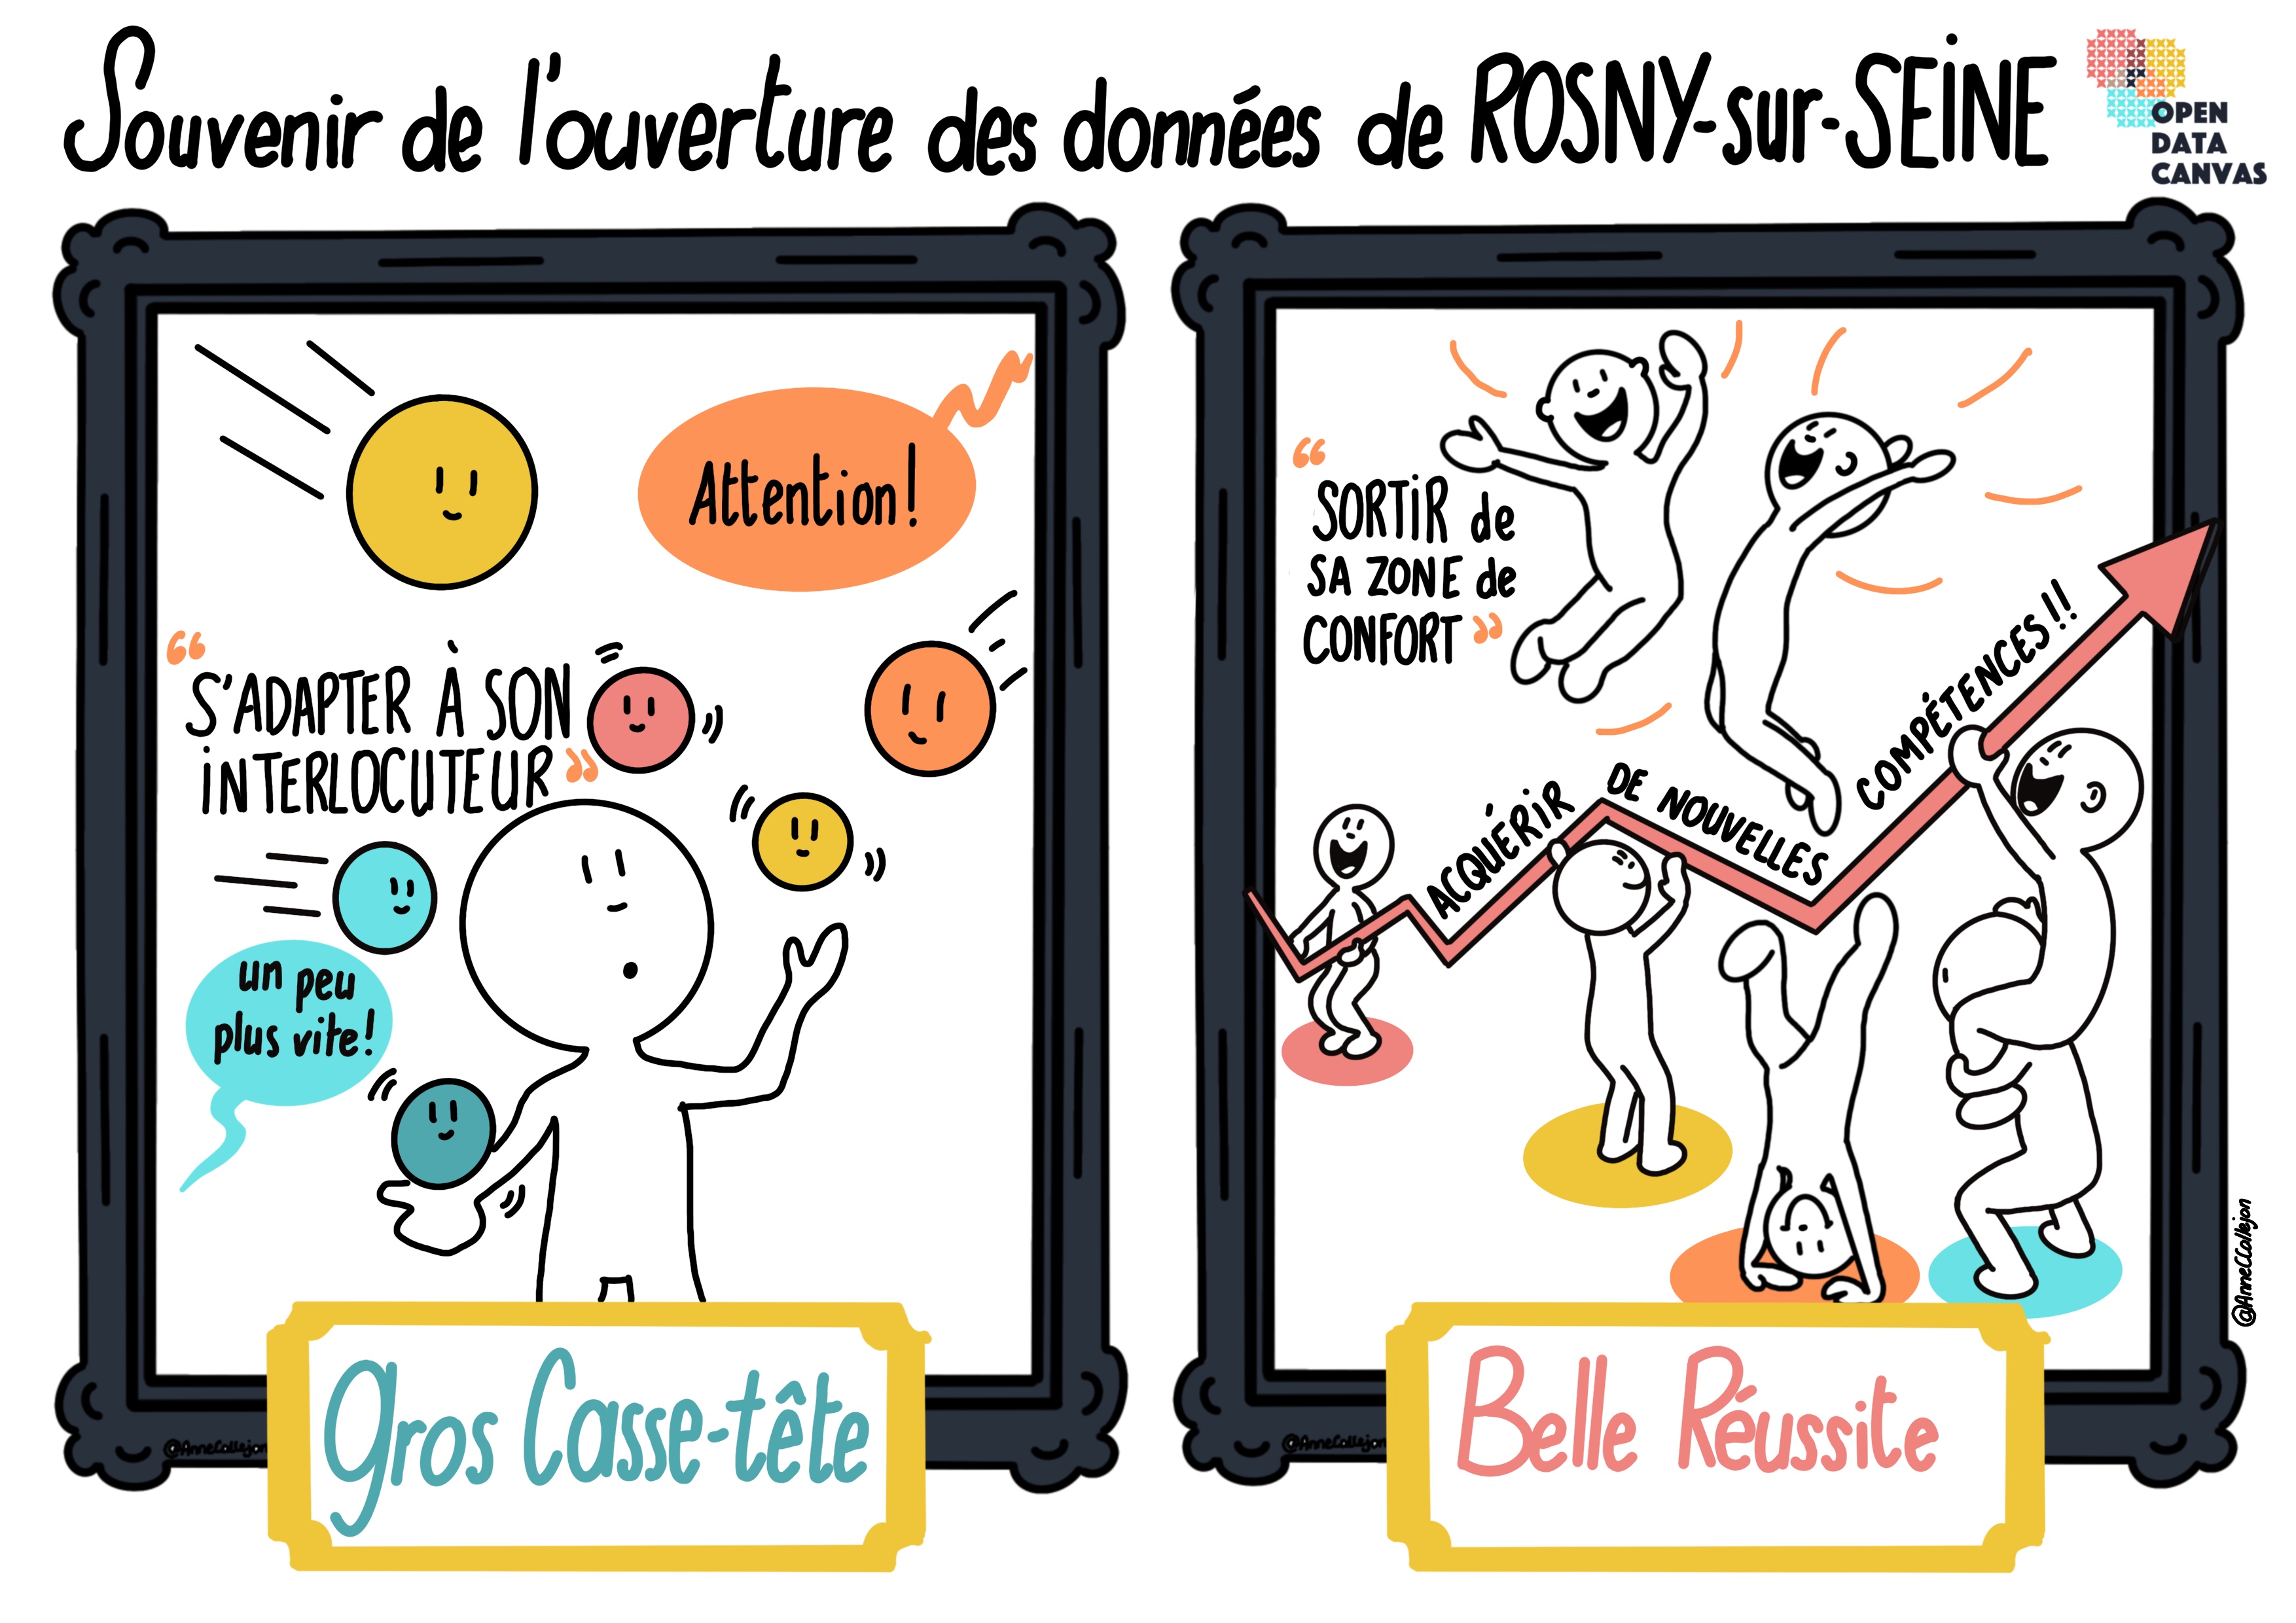 Souvenir de l'ouverture des données de ROSNY-sur-SEINE
OPEN
DATA
CANVAS
Attention !
“ S'ADAPTER À SON
INTERLOCUTEUR ”
un peu
plus vite !
Gros Casse-tête
@AnneCallejon
“ SORTIR de
SA ZONE de
CONFORT ”
ACQUÉRIR DE NOUVELLES COMPÉTENCES !!
Belle Réussite
@AnneCallejon
@AnneCCallejon